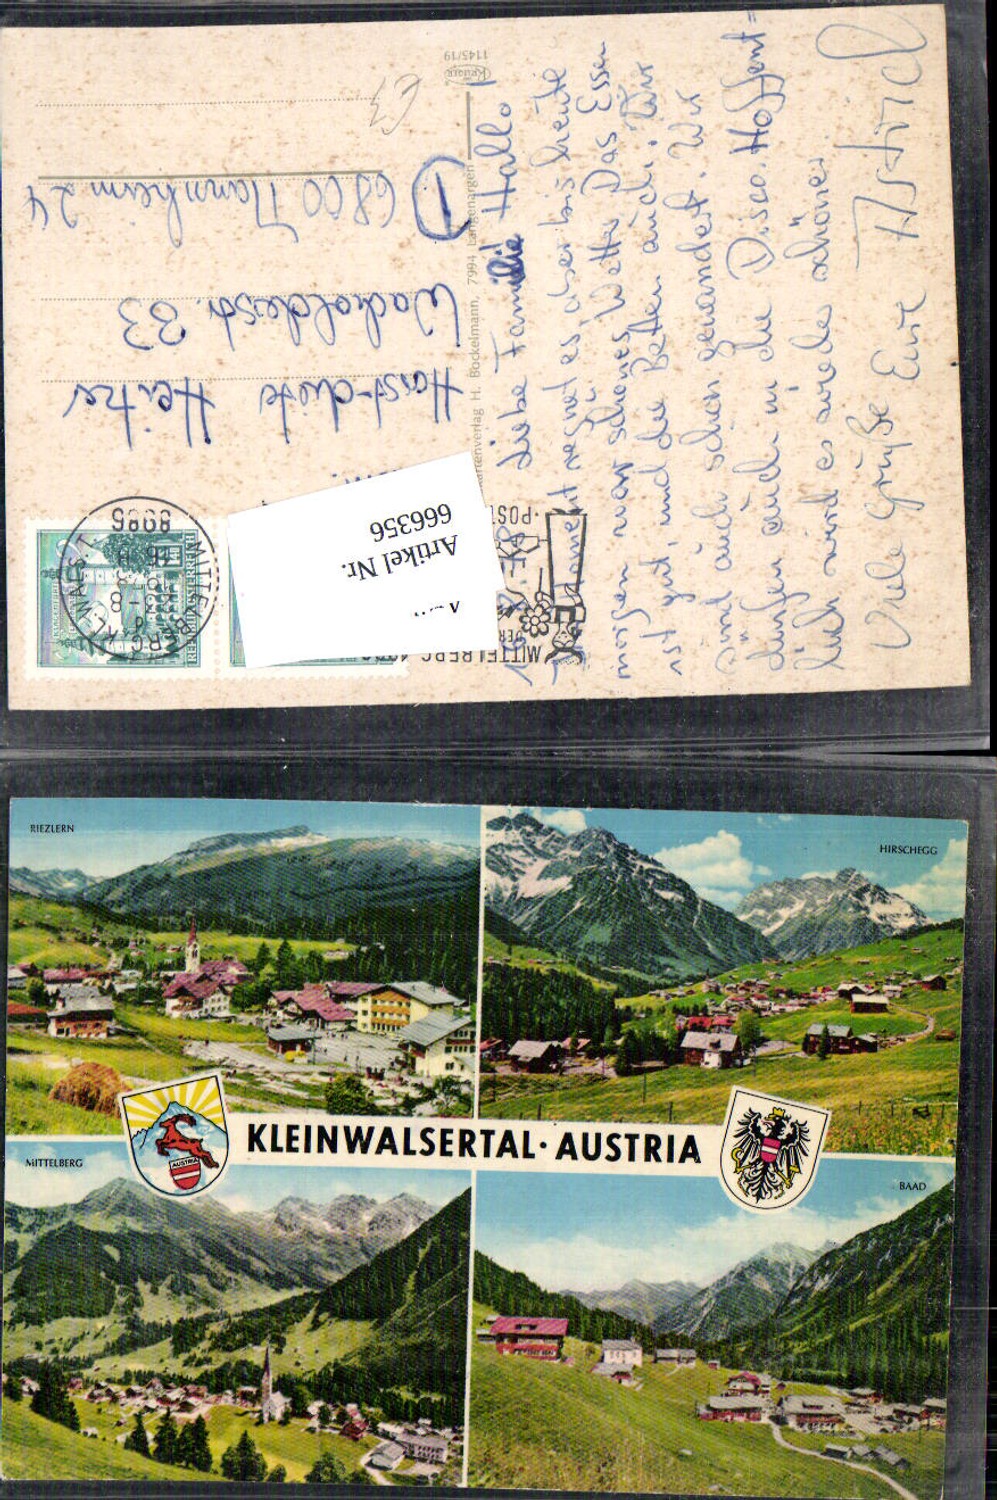 1145/19
KRÜGER
€3
D 6800 Mannheim 24
Wacholderstr. 33
Horst-dieter Heitzer
artenverlag H. Bockelmann, 7994 Langenargen
Artikel Nr.
666356
8986
MITTELBERG
KL. WALSERT.
REPUBLIK ÖSTERREICH
MITTELBERG
POST
Liebe Familie Hallo!
Moment regnet es, aber bis heute
morgen war schönes Wetter. Das Essen
ist gut, und die Betten auch. Wir
sind auch schon gewandert. Wir
dürfen auch in die Disco. Hoffent=
lich wird es wieder schöner
Viele Grüße Eure Astrid
RIEZLERN
HIRSCHEGG
AUSTRIA
KLEINWALSERTAL · AUSTRIA
MITTELBERG
BAAD